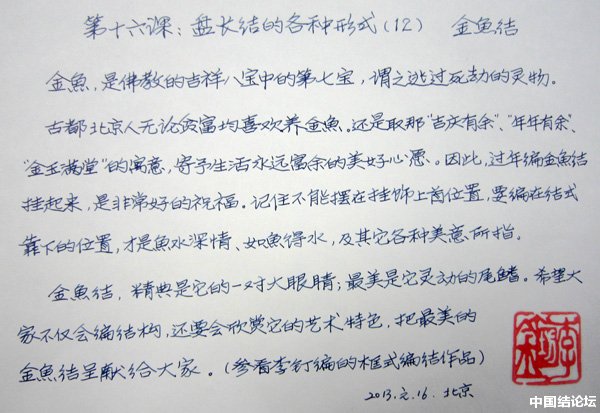 第十六课：盘长结的各种形式(12) 金鱼结
金魚，是佛教的吉祥八宝中的第七宝，谓之逃过死劫的灵物。
古都北京人无论贫富均喜欢养金魚。还是取那“吉庆有余”、“年年有余”、
“金玉满堂”的寓意，寄予生活永远富余的美好心愿。因此，过年编金魚结
挂起来，是非常好的祝福。记住不能摆在挂饰上首位置，要编在结式
靠下的位置，才是魚水深情、如魚得水，及其它各种美意所指。
金魚结，精典是它的一对大眼睛；最美是它灵动的尾鳍。希望大
家不仅会编结构，还要会欣赏它的艺术特色，把最美的
金魚结呈献给大家。(参看李钉编的框式编结作品)
2013.元.16.北京
中国结论坛